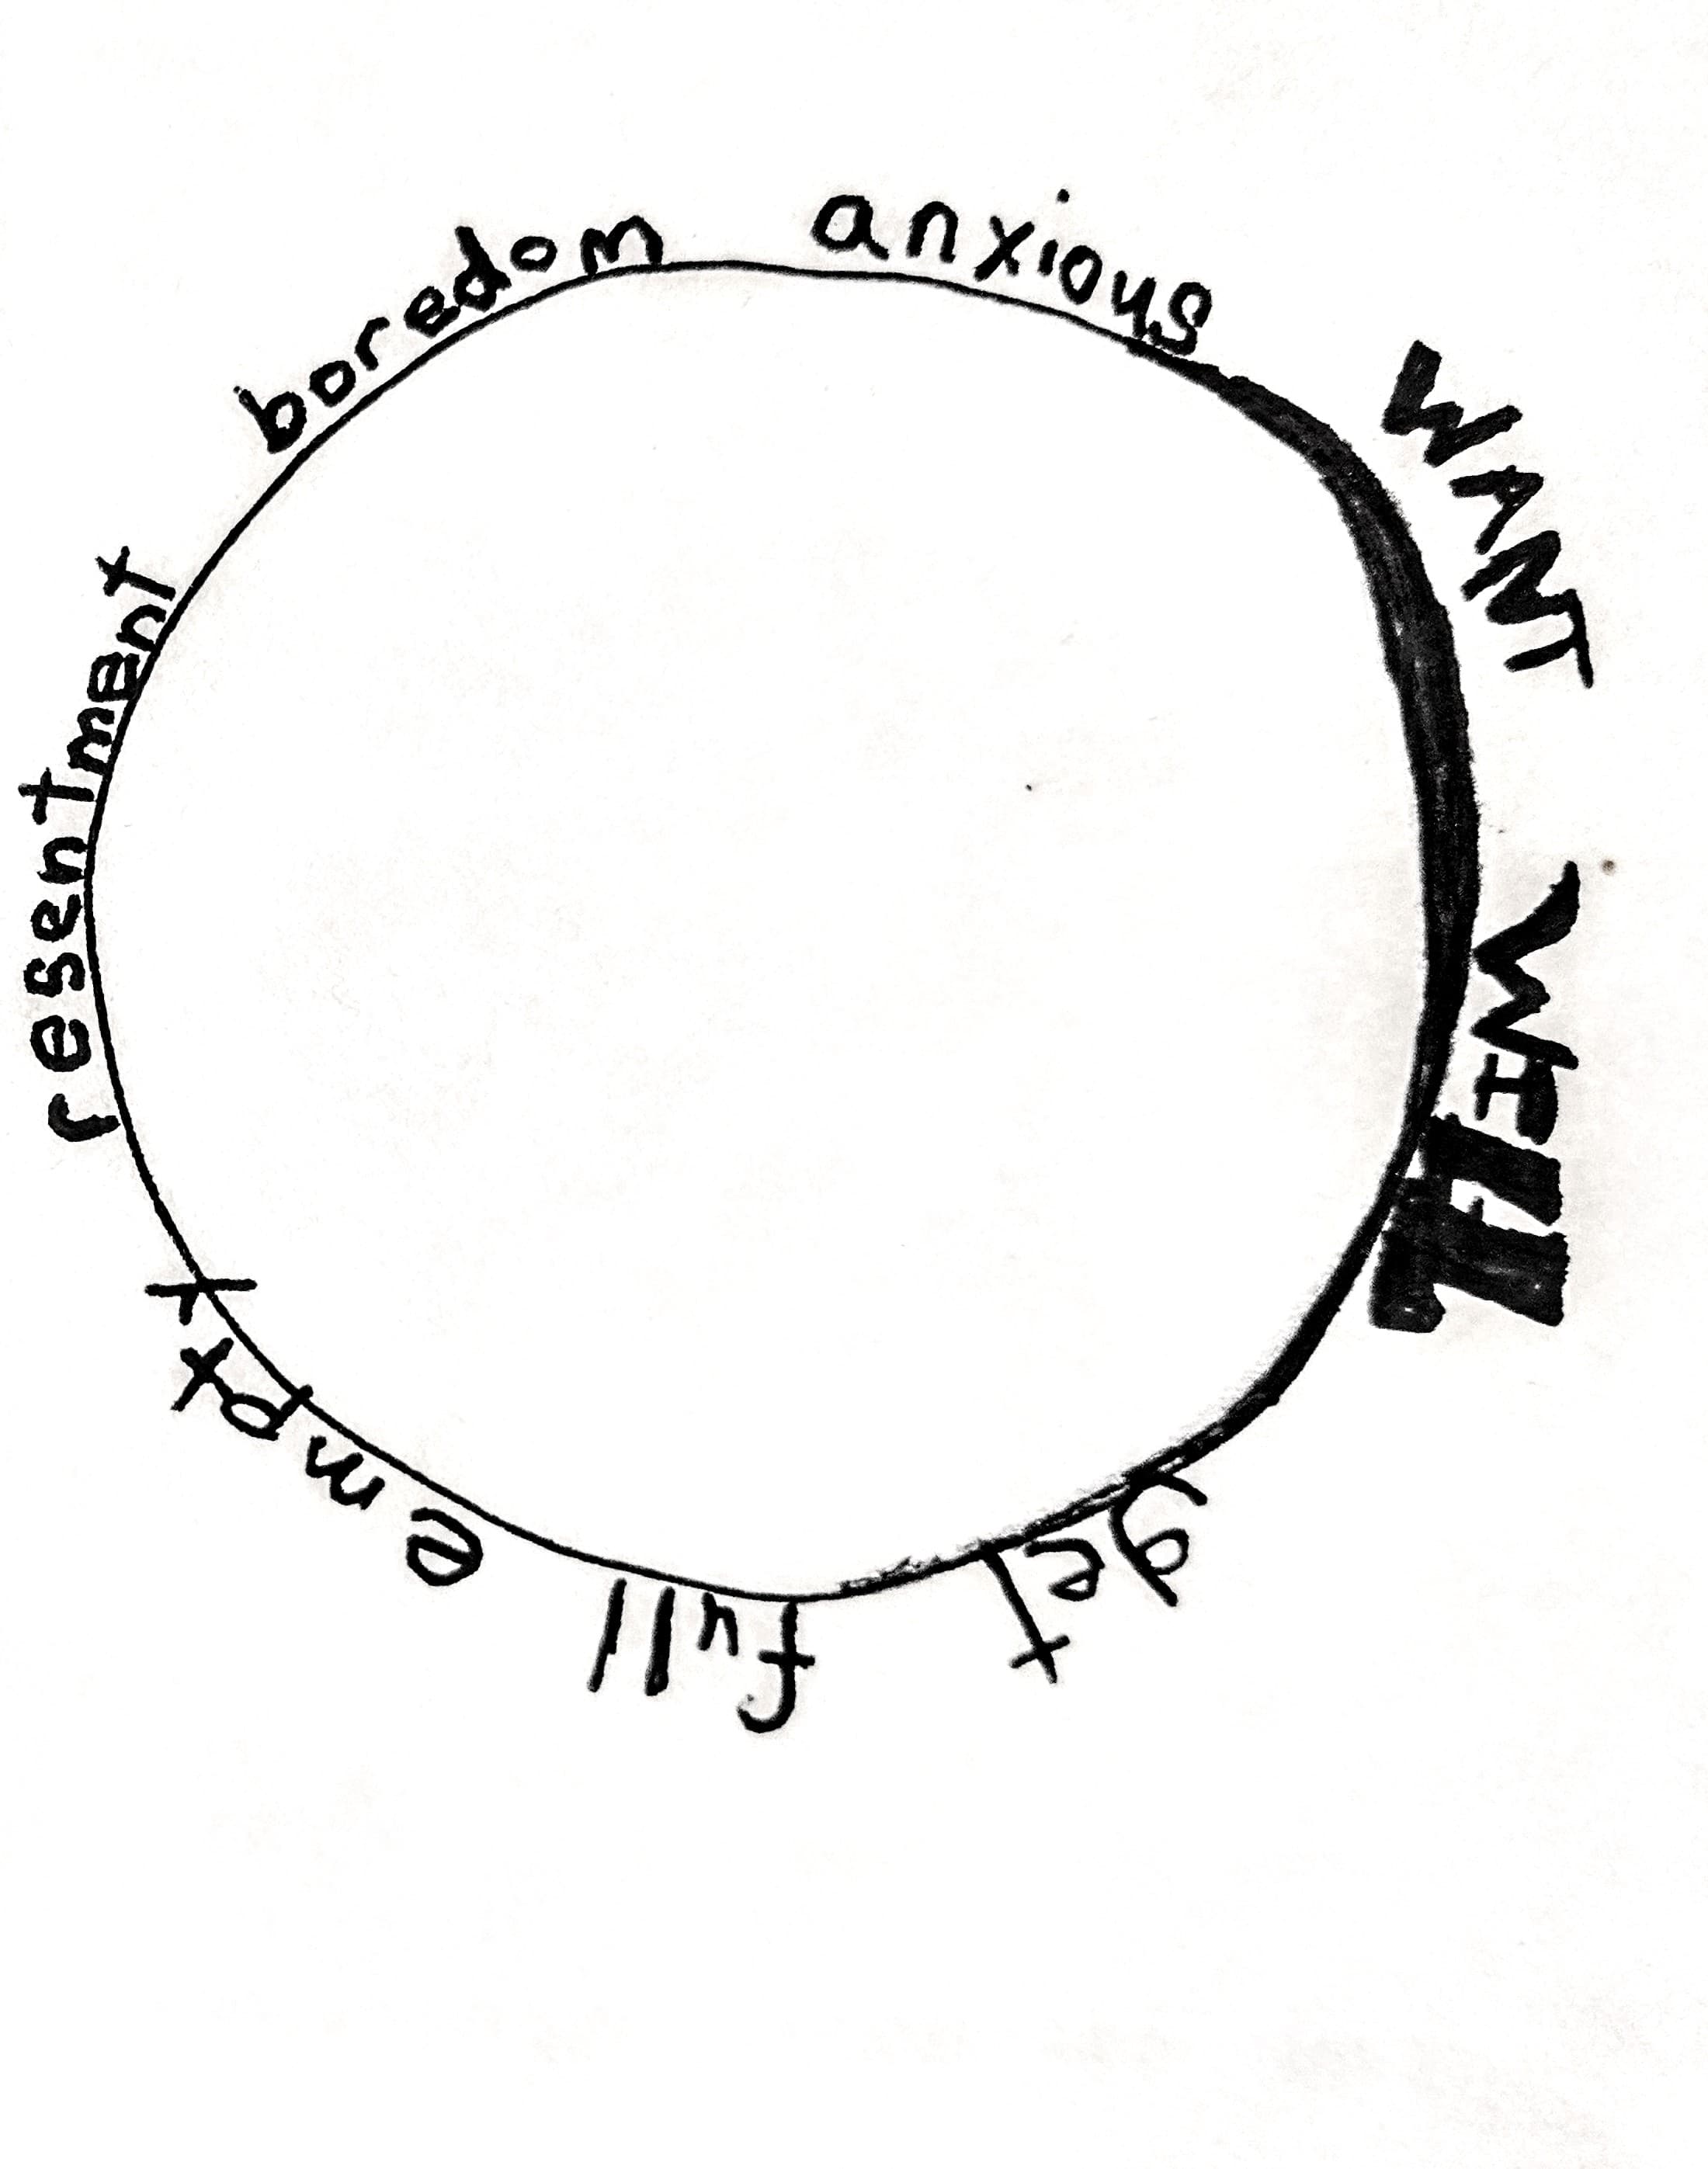 anxious
WANT
WILL
get
full
empty
resentment
boredom